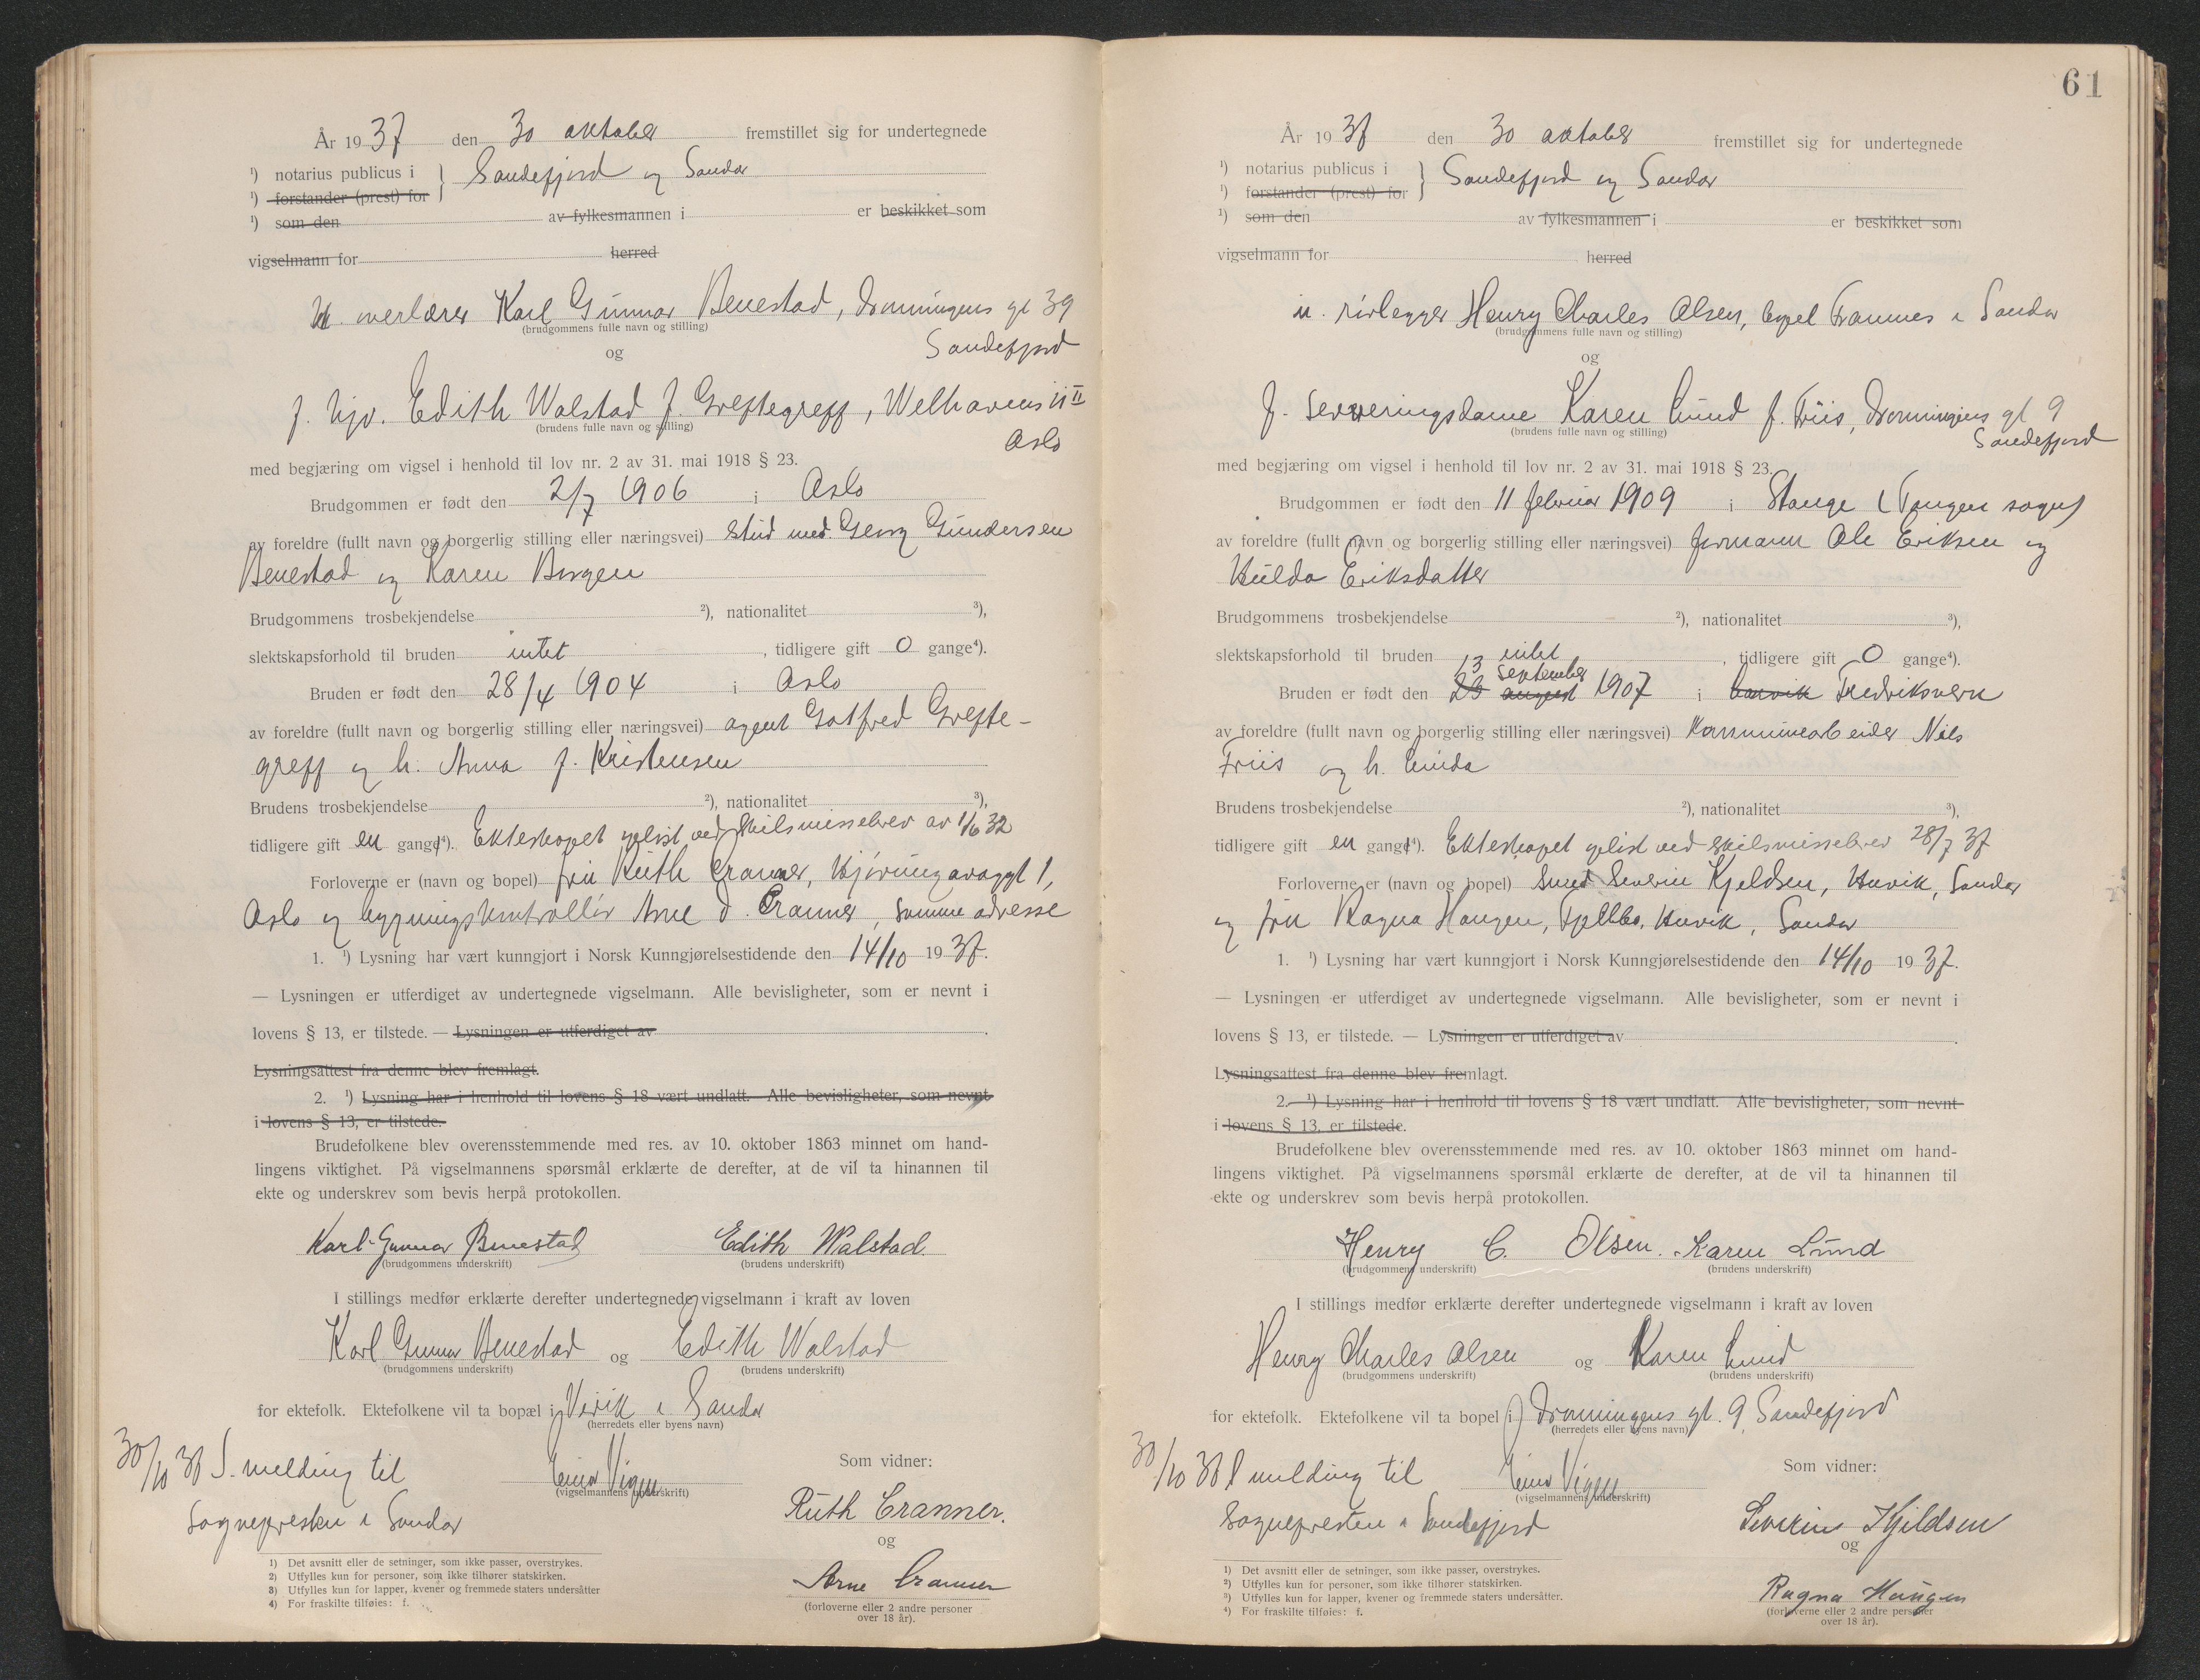 År 1937 den 30 oktober fremstillet sig for undertegnede
¹) notarius publicus i } Sandefjord og Sandar
¹) forstander (prest) for
¹) som den av fylkesmannen i er beskikket som
vigselmann for herred
overlærer Karl Gunnar Benestad, Dronningens gt 39
(brudgommens fulle navn og stilling)
Sandefjord
og
f. hjv. Edith Walstad f. Greftegreff, Welhavens 11 II
(brudens fulle navn og stilling)
Oslo
med begjæring om vigsel i henhold til lov nr. 2 av 31. mai 1918 § 23.
Brudgommen er født den 2/7 1906 i Oslo
av foreldre (fullt navn og borgerlig stilling eller næringsvei) stud med. Georg Gundersen
Benestad og Karen Borgen
Brudgommens trosbekjendelse ²), nationalitet ³),
slektskapsforhold til bruden intet, tidligere gift 0 gange⁴).
Bruden er født den 28/4 1904 i Oslo
av foreldre (fullt navn og borgerlig stilling eller næringsvei) agent Gotfred Grefte-
greff og h. Anna f. Kristensen
Brudens trosbekjendelse ²), nationalitet ³),
tidligere gift en gange⁴). Ekteskapet opløst ved skilsmissebrev av 1/6 32
Forloverne er (navn og bopel) fru Ruth Cranner, Hjørungavaggt 1,
Oslo og bygningskontrollør Arne d. Cranner, samme adresse
1. ¹) Lysning har vært kunngjort i Norsk Kunngjørelsestidende den 14/10 1937.
— Lysningen er utferdiget av undertegnede vigselmann. Alle bevisligheter, som er nevnt i
lovens § 13, er tilstede. — Lysningen er utferdiget av .
Lysningsattest fra denne blev fremlagt.
2. ¹) Lysning har i henhold til lovens § 18 vært undlatt. Alle bevisligheter, som nevnt
i lovens § 13, er tilstede.
Brudefolkene blev overensstemmende med res. av 10. oktober 1863 minnet om hand-
lingens viktighet. På vigselmannens spørsmål erklærte de derefter, at de vil ta hinannen til
ekte og underskrev som bevis herpå protokollen.
Karl Gunnar Benestad Edith Walstad.
(brudgommens underskrift) (brudens underskrift)
I stillings medfør erklærte derefter undertegnede vigselmann i kraft av loven
Karl Gunnar Benestad og Edith Walstad
(brudgommens underskrift) (brudens underskrift)
for ektefolk. Ektefolkene vil ta bopæl i Virik i Sandar
(herredets eller byens navn)
30/10 37 S. melding til
Einar Vigen
(vigselmannens underskrift)
Som vidner:
Sognepresten i Sandar
Ruth Cranner.
og
Arne Cranner
(forloverne eller 2 andre personer
over 18 år).
1) Det avsnitt eller de setninger, som ikke passer, overstrykes.
2) Utfylles kun for personer, som ikke tilhører statskirken.
3) Utfylles kun for lapper, kvener og fremmede staters undersåtter
4) For fraskilte tilføies: f.
61
År 1937 den 30 oktober fremstillet sig for undertegnede
¹) notarius publicus i } Sandefjord og Sandar
¹) forstander (prest) for
¹) som den av fylkesmannen i er beskikket som
vigselmann for herred
u. rørlegger Henry Charles Olsen, bopel Framnes i Sandar
(brudgommens fulle navn og stilling)
og
f. serveringsdame Karen Lund f. Friis, Dronningens gt 9
(brudens fulle navn og stilling)
Sandefjord
med begjæring om vigsel i henhold til lov nr. 2 av 31. mai 1918 § 23.
Brudgommen er født den 11 februar 1909 i Stange (Tangen sogn)
av foreldre (fullt navn og borgerlig stilling eller næringsvei) formann Ole Eriksen og
Hulda Eriksdatter
Brudgommens trosbekjendelse ²), nationalitet ³),
slektskapsforhold til bruden intet, tidligere gift 0 gange⁴).
13 september
Bruden er født den 23 august 1907 i Larvik Fredriksvern
av foreldre (fullt navn og borgerlig stilling eller næringsvei) Kommunearbeider Nils
Friis og h. Linda
Brudens trosbekjendelse ²), nationalitet ³),
tidligere gift en gange⁴). Ekteskapet opløst ved skilsmissebrev 28/7 37
Forloverne er (navn og bopel) Smed Severin Kjeldsen, Huvik, Sandar
og fru Ragna Haugen, Fjellbo, Huvik, Sandar
1. ¹) Lysning har vært kunngjort i Norsk Kunngjørelsestidende den 14/10 1937.
— Lysningen er utferdiget av undertegnede vigselmann. Alle bevisligheter, som er nevnt i
lovens § 13, er tilstede. — Lysningen er utferdiget av .
Lysningsattest fra denne blev fremlagt.
2. ¹) Lysning har i henhold til lovens § 18 vært undlatt. Alle bevisligheter, som nevnt
i lovens § 13, er tilstede.
Brudefolkene blev overensstemmende med res. av 10. oktober 1863 minnet om hand-
lingens viktighet. På vigselmannens spørsmål erklærte de derefter, at de vil ta hinannen til
ekte og underskrev som bevis herpå protokollen.
Henry C. Olsen. Karen Lund
(brudgommens underskrift) (brudens underskrift)
I stillings medfør erklærte derefter undertegnede vigselmann i kraft av loven
Henry Charles Olsen og Karen Lund
(brudgommens underskrift) (brudens underskrift)
for ektefolk. Ektefolkene vil ta bopel i Dronningens gt. 9, Sandefjord
(herredets eller byens navn)
30/10 37 S melding til
Einar Vigen
(vigselmannens underskrift)
Som vidner:
Sognepresten i Sandefjord
Severin Kjeldsen
og
Ragna Haugen
(forloverne eller 2 andre personer
over 18 år).
¹) Det avsnitt eller de setninger, som ikke passer, overstrykes.
²) Utfylles kun for personer, som ikke tilhører statskirken.
³) Utfylles kun for lapper, kvener og fremmede staters undersåtter.
⁴) For fraskilte tilføies: f.